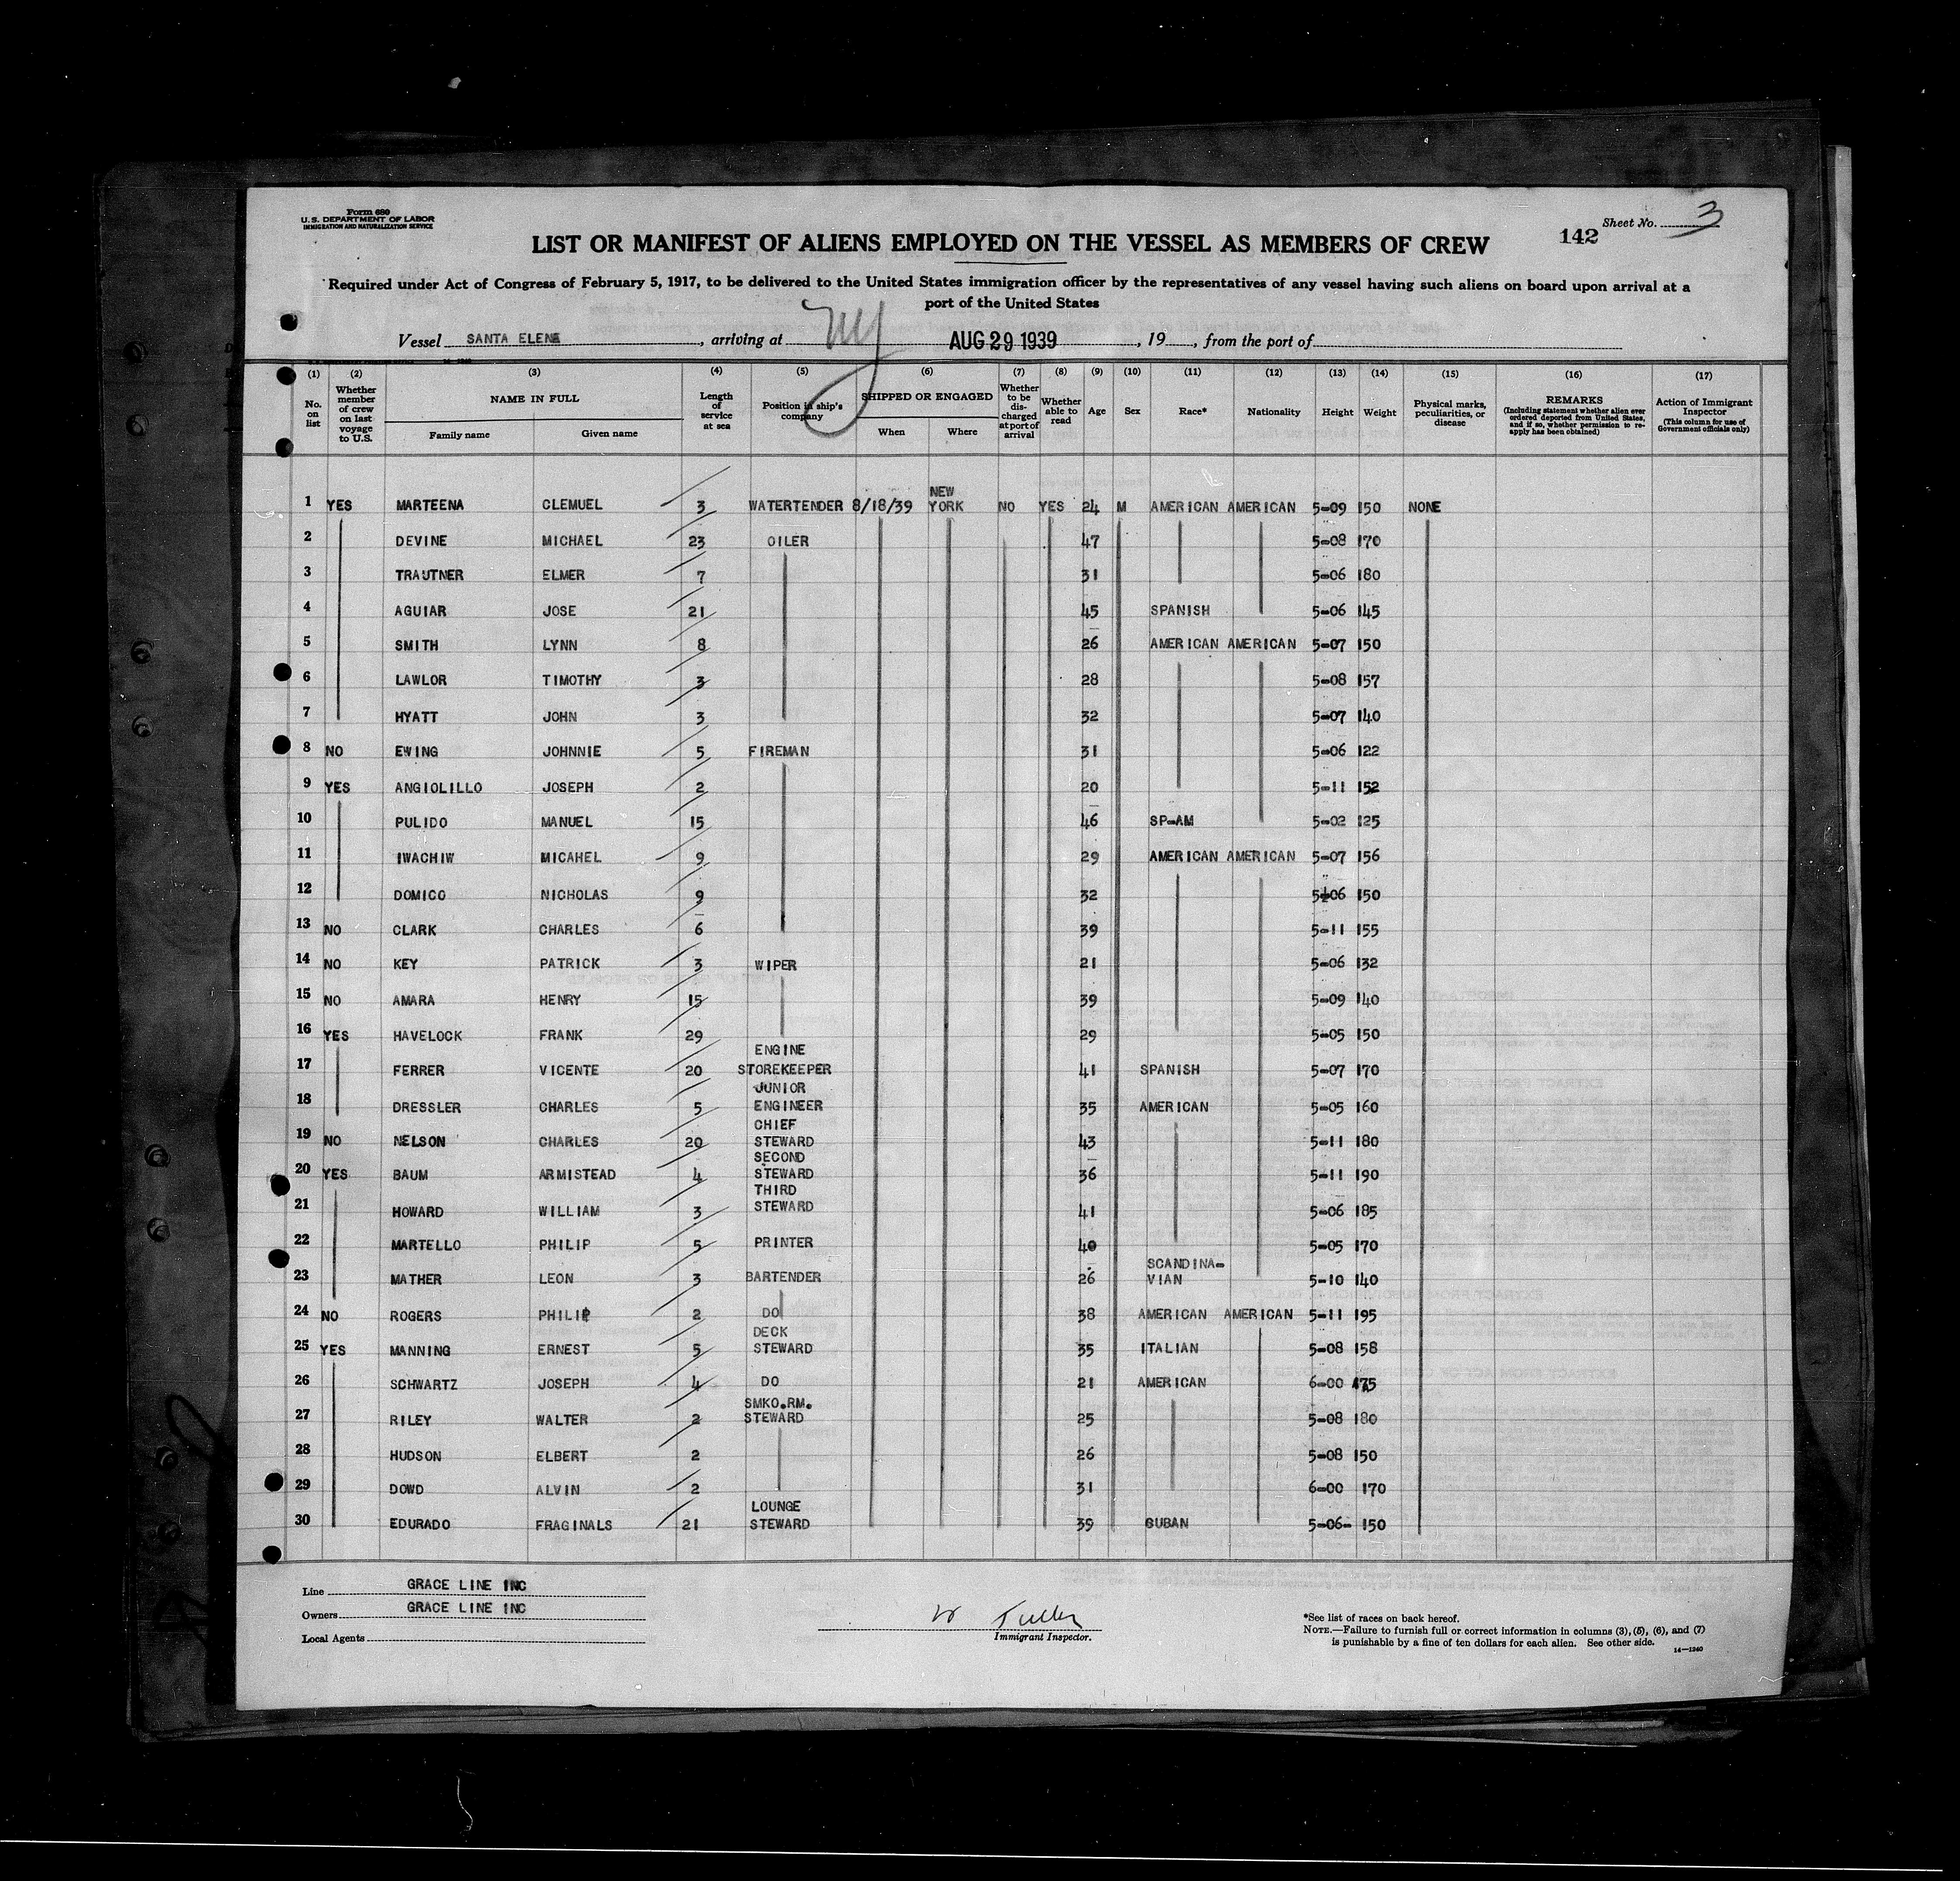 Form 680
U.S. DEPARTMENT OF LABOR
IMMIGRATION AND NATURALIZATION SERVICE
142 Sheet No. 3
LIST OR MANIFEST OF ALIENS EMPLOYED ON THE VESSEL AS MEMBERS OF CREW
Required under Act of Congress of February 5, 1917, to be delivered to the United States immigration officer by the representatives of any vessel having such aliens on board upon arrival at a
port of the United States
Vessel SANTA ELENA, arriving at NY AUG 29 1939, 19, from the port of
(1) (2) (3) (4) (5) (6) (7) (8) (9) (10) (11) (12) (13) (14) (15) (16) (17)
No. on list
Whether member of crew on last voyage to U.S.
NAME IN FULL
Family name Given name
Length of service at sea
Position in ship's company
SHIPPED OR ENGAGED
When Where
Whether to be discharged at port of arrival
Whether able to read
Age Sex Race* Nationality Height Weight
Physical marks, peculiarities, or disease
REMARKS
(Including statement whether alien ever ordered deported from United States, and if so, whether permission to reapply has been obtained)
Action of Immigrant Inspector
(This column for use of Government officials only)
1 YES MARTEENA CLEMUEL 3 WATERTENDER 8/18/39 NEW YORK NO YES 24 M AMERICAN AMERICAN 5-09 150 NONE
2 DEVINE MICHAEL 23 OILER 47 5-08 170
3 TRAUTNER ELMER 7 31 5-06 180
4 AGUIAR JOSE 21 45 SPANISH 5-06 145
5 SMITH LYNN 8 26 AMERICAN AMERICAN 5-07 150
6 LAWLOR TIMOTHY 3 28 5-08 157
7 HYATT JOHN 3 32 5-07 140
8 NO EWING JOHNNIE 5 FIREMAN 31 5-06 122
9 YES ANGIOLILLO JOSEPH 2 20 5-11 152
10 PULIDO MANUEL 15 46 SP-AM 5-02 125
11 IWACHIW MICAHEL 9 29 AMERICAN AMERICAN 5-07 156
12 DOMICO NICHOLAS 9 32 5-06 150
13 NO CLARK CHARLES 6 39 5-11 155
14 NO KEY PATRICK 3 WIPER 21 5-06 132
15 NO AMARA HENRY 15 39 5-09 140
16 YES HAVELOCK FRANK 29 29 5-05 150
17 FERRER VICENTE 20 ENGINE STOREKEEPER 41 SPANISH 5-07 170
18 DRESSLER CHARLES 5 JUNIOR ENGINEER 35 AMERICAN 5-05 160
19 NO NELSON CHARLES 20 CHIEF STEWARD 43 5-11 180
20 YES BAUM ARMISTEAD 4 SECOND STEWARD 36 5-11 190
21 HOWARD WILLIAM 3 THIRD STEWARD 41 5-06 185
22 MARTELLO PHILIP 5 PRINTER 40 5-05 170
23 MATHER LEON 3 BARTENDER 26 SCANDINA-VIAN 5-10 140
24 NO ROGERS PHILIP 2 DO 38 AMERICAN AMERICAN 5-11 195
25 YES MANNING ERNEST 5 DECK STEWARD 35 ITALIAN 5-08 158
26 SCHWARTZ JOSEPH 4 DO 21 AMERICAN 6-00 175
27 RILEY WALTER 2 SMKO.RM. STEWARD 25 5-08 180
28 HUDSON ELBERT 2 26 5-08 150
29 DOWD ALVIN 2 31 6-00 170
30 EDURADO FRAGINALS 21 LOUNGE STEWARD 39 CUBAN 5-06- 150
Line GRACE LINE INC
Owners GRACE LINE INC
Local Agents
W Tuller
Immigrant Inspector.
*See list of races on back hereof.
NOTE.—Failure to furnish full or correct information in columns (3), (5), (6), and (7)
is punishable by a fine of ten dollars for each alien. See other side.
14—1240